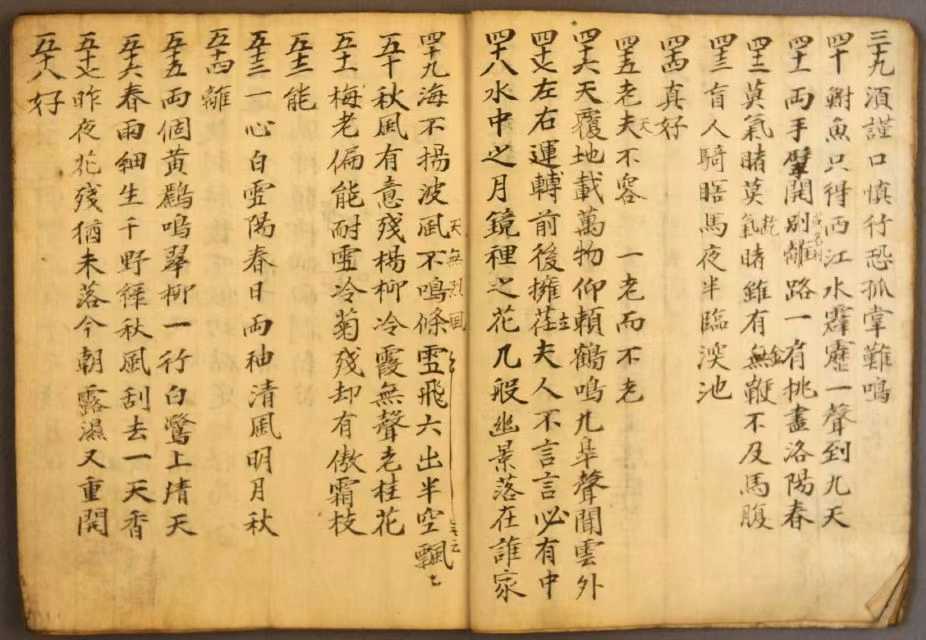 三十九 須謹口慎行恐孤掌難鳴
四十 鮒魚只得西江水霹靂一聲到九天
四十一 兩手擘開別離路一有挑盡洛陽春
四十二 莫氣睹莫氣睹雖有無鞭不及馬腹
四十三 盲人騎瞎馬夜半臨深池
四十四 真好
四十五 老夫不容一老而不老
天
四十六 天覆地載萬物仰賴鶴鳴九皐聲聞雲外
四十七 左右運轉前後擁荏夫人不言言必有中
立
四十八 水中之月鏡裡之花几般幽景落在誰家
四十九 海不揚波風不鳴條雪飛六出半空飄
天無烈風
五十 秋風有意殘楊柳冷霞無聲老桂花
五十一 梅老偏能耐雪冷菊殘却有傲霜枝
五十二 能
五十三 一心白雪陽春日兩袖清風明月秋
五十四 離
五十五 兩個黃鸝鳴翠柳一行白鷺上青天
五十六 春雨細生千野綠秋風刮去一天香
五十七 昨夜花殘猶未落今朝露濕又重開
五十八 好